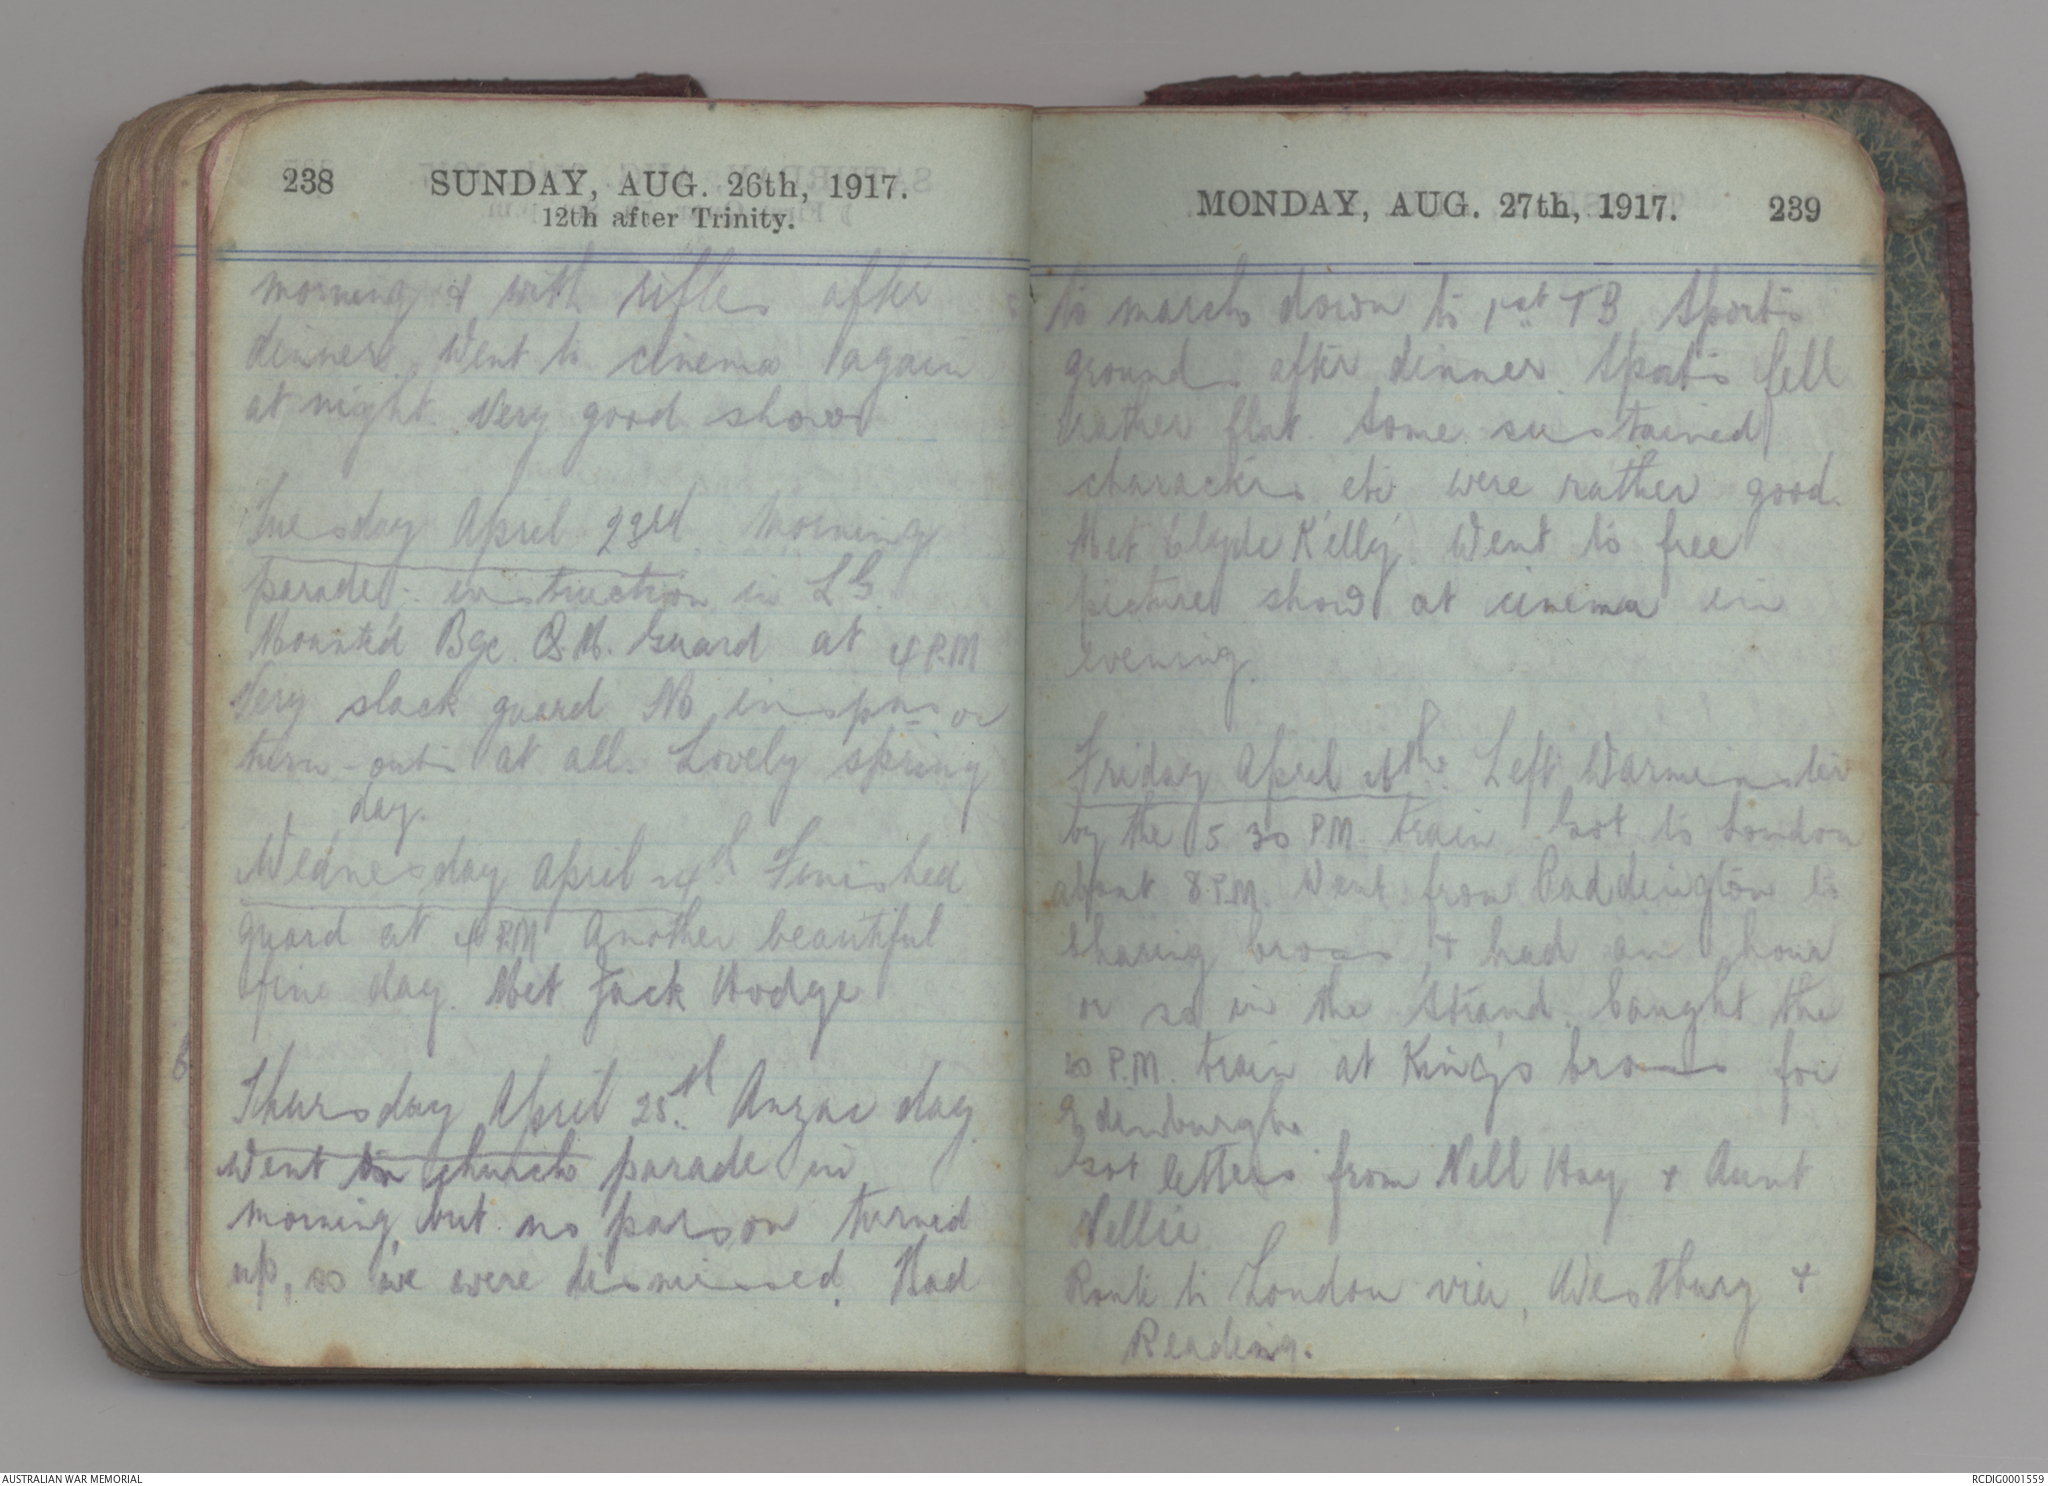 238 SUNDAY, AUG. 26th, 1917.
12th after Trinity.
morning & with rifles after
dinner. Went to cinema again
at night. Very good show
Tuesday April 23rd. Morning
parade:- instruction in L G.
Mounted Bge. Q.M. Guard at 4 P.M
Very slack guard No inspns or
turn-outs at all. Lovely spring
day.
Wednesday April 24th Finished
guard at 4 PM Another beautiful
fine day. Met Jack Hodge
Thursday April 25th. Anzac day
Went on church parade in
morning but no parson turned
up, so we were dismissed. Had
MONDAY, AUG. 27th, 1917. 239
to march down to 1st T B Sports
ground after dinner. Sports fell
rather flat. Some sustained
characters etc were rather good.
Met Clyde Kelly. Went to free
picture show at cinema in
evening.
Friday April th. Left Warminster
by the 5 30 P.M. train. Got to London
about 8 P.M. Went from Paddington to
Charing Cross & had an hour
or so in the Strand. Caught the
10 P.M. train at King's Cross for
Edinburgh.
Got letters from Nell Hay & Aunt
Nellie
Route to London via, Westbury &
Reading.
AUSTRALIAN WAR MEMORIAL
RCDIG0001559